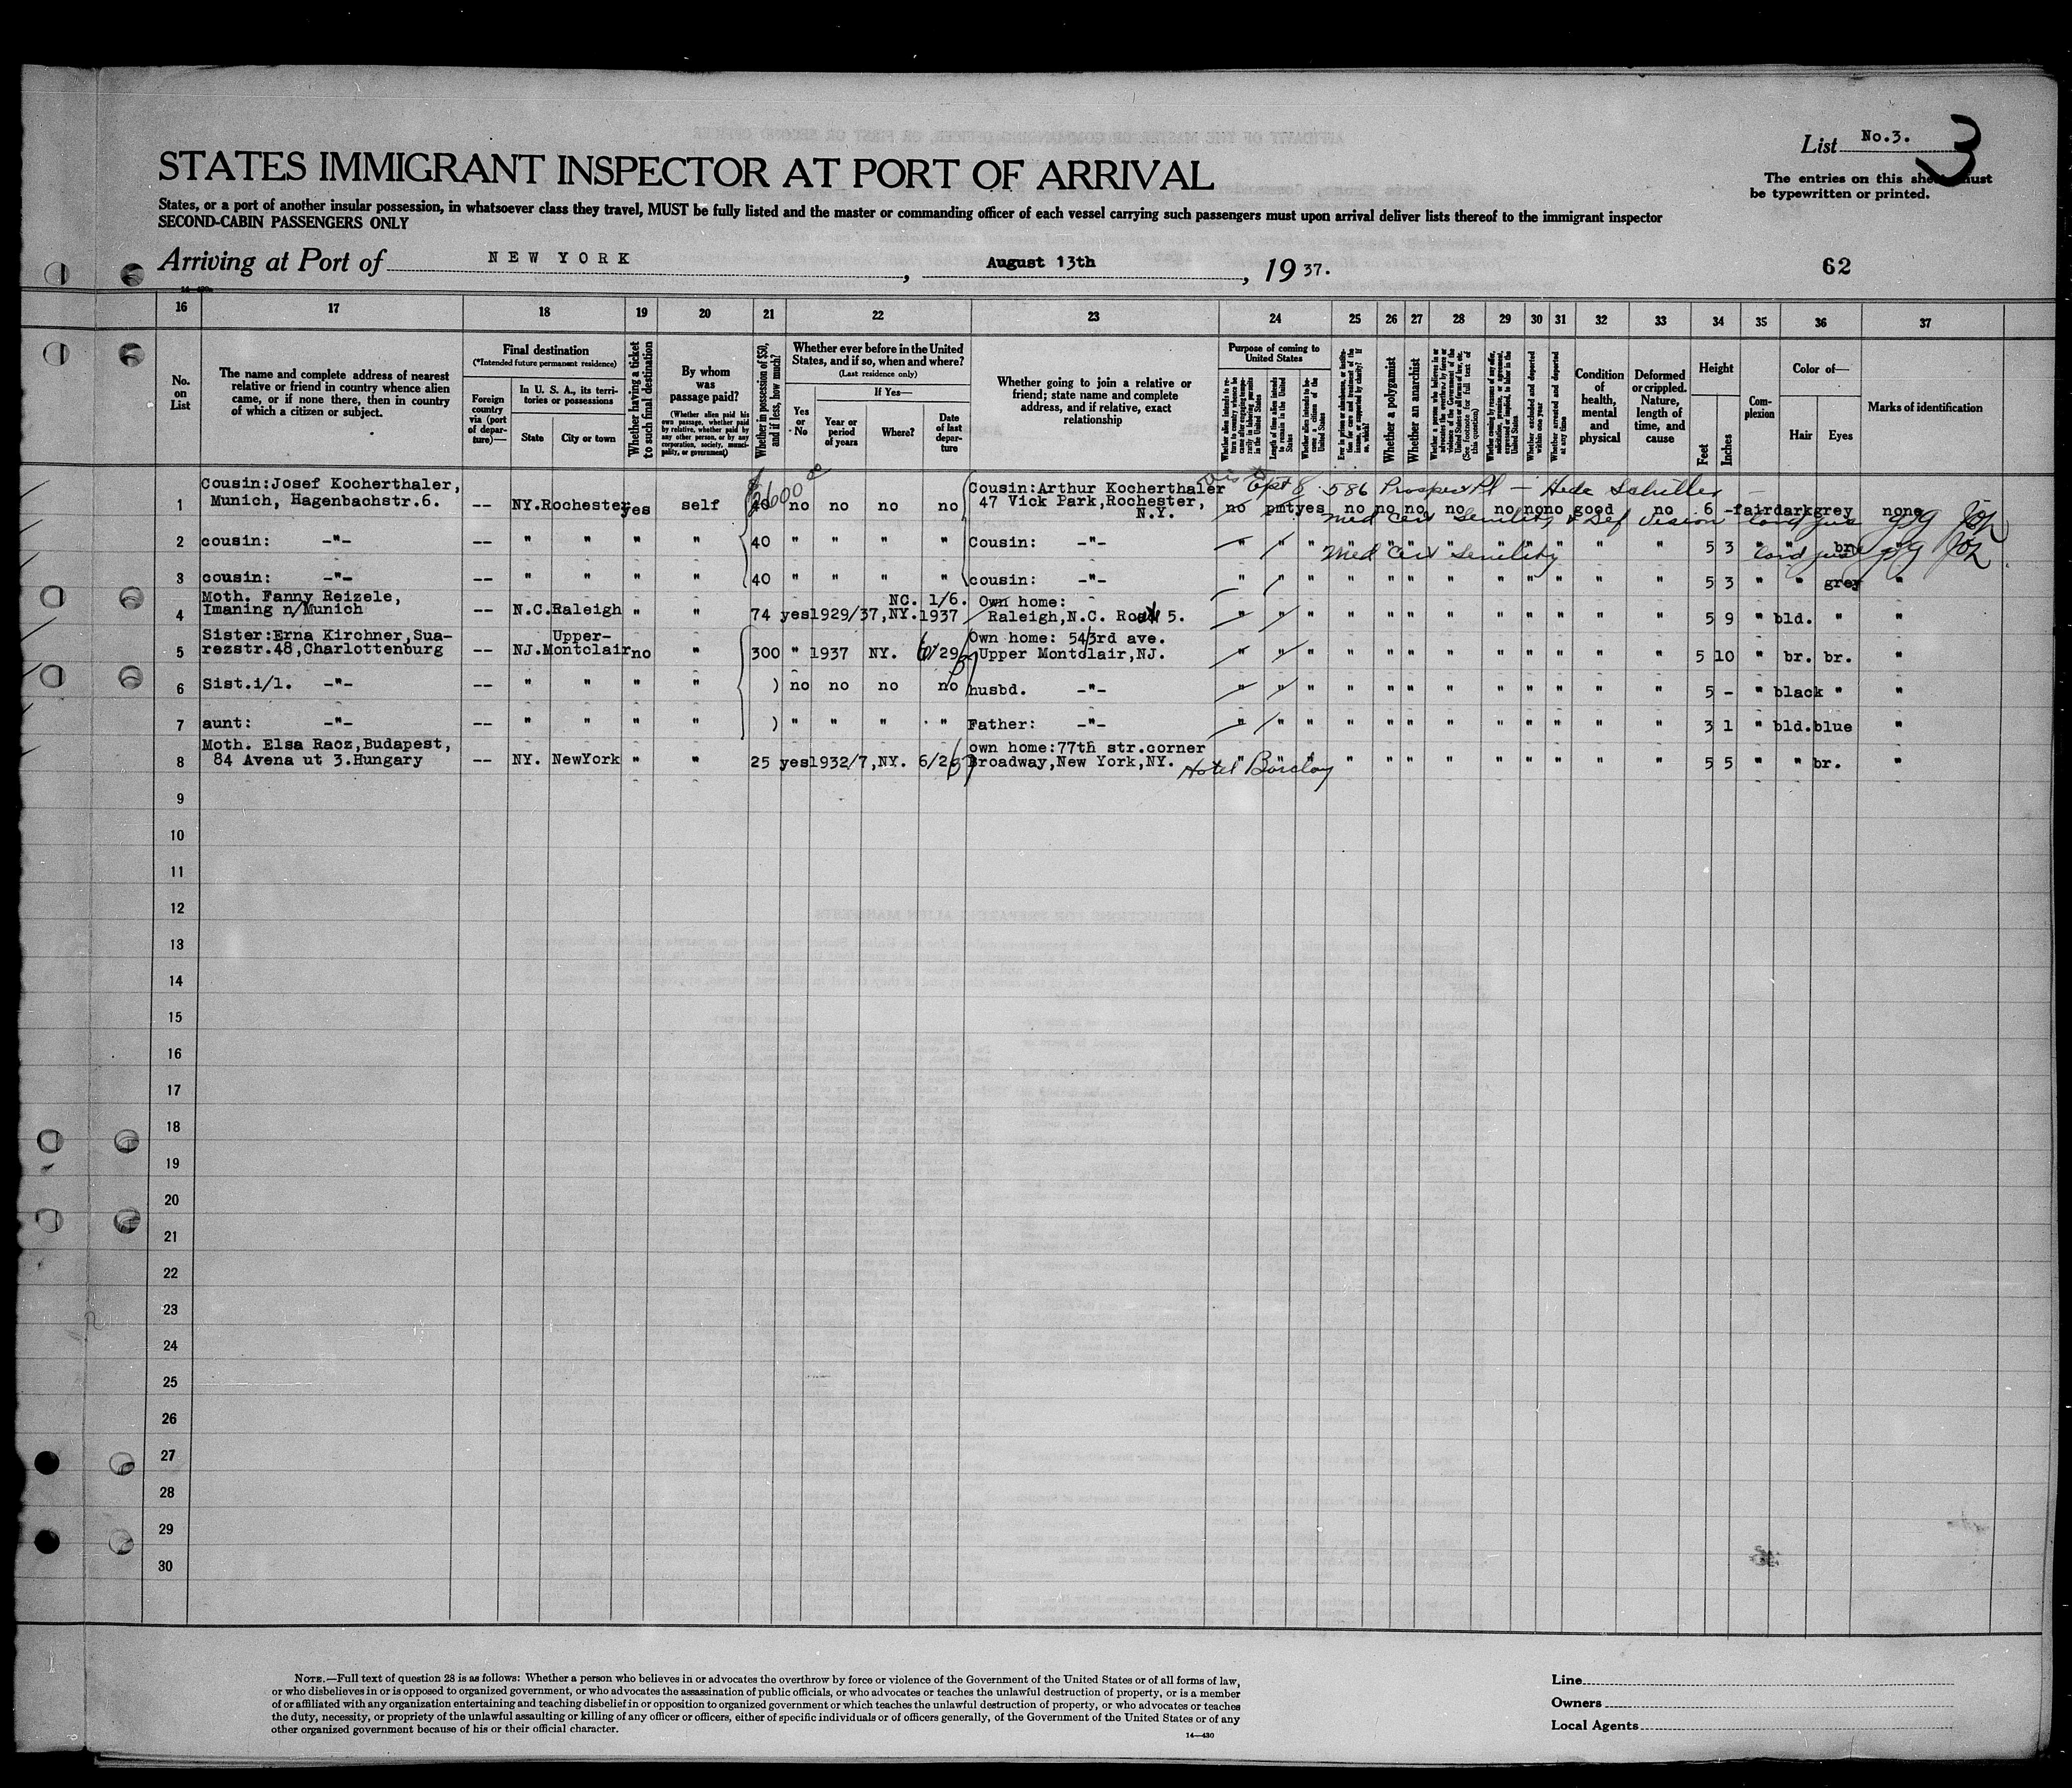 List No.3. 3
The entries on this sheet must
be typewritten or printed.
STATES IMMIGRANT INSPECTOR AT PORT OF ARRIVAL
States, or a port of another insular possession, in whatsoever class they travel, MUST be fully listed and the master or commanding officer of each vessel carrying such passengers must upon arrival deliver lists thereof to the immigrant inspector
SECOND-CABIN PASSENGERS ONLY
Arriving at Port of NEW YORK, August 13th, 1937. 62
16 17 18 19 20 21 22 23 24 25 26 27 28 29 30 31 32 33 34 35 36 37
No. on List
The name and complete address of nearest
relative or friend in country whence alien
came, or if none there, then in country
of which a citizen or subject.
Final destination
(*Intended future permanent residence)
Foreign country via (port of departure)—
In U. S. A., its territories or possessions
State City or town
Whether having a ticket to such final destination
By whom was passage paid?
(Whether alien paid his own passage, whether paid by relative, whether paid by any other person, or by any corporation, society, municipality, or government)
Whether in possession of $50, and if less, how much?
Whether ever before in the United
States, and if so, when and where?
(Last residence only)
Yes or No
If Yes—
Year or period of years
Where?
Date of last departure
Whether going to join a relative or
friend; state name and complete
address, and if relative, exact
relationship
Purpose of coming to United States
Whether a polygamist
Whether an anarchist
Condition of health, mental and physical
Deformed or crippled. Nature, length of time, and cause
Height
Feet Inches
Complexion
Color of—
Hair Eyes
Marks of identification
586 Prospect Pl — Hede Schiller
1 Cousin:Josef Kocherthaler, Munich, Hagenbachstr.6. -- NY. Rochester yes self 40 no no no no Cousin:Arthur Kocherthaler 47 Vick Park,Rochester, N.Y. no pmt yes no no no no no no no good no 6 - fair dark grey none
Med Cert Senility & Def Vision
2 cousin: -"- -- " " " " 40 " " " " Cousin: -"- " " " " " " " " " " " " 5 3 " " brn "
Med Cert Senility
3 cousin: -"- -- " " " " 40 " " " " cousin: -"- " " " " " " " " " " " " 5 3 " " grey "
4 Moth. Fanny Reizele, Imaning n/Munich -- N.C. Raleigh " " 74 yes 1929/37, NC. NY. 1/6. 1937 Own home: Raleigh,N.C. Road 5. " " " " " " " " " " " " 5 9 " bld. " "
5 Sister:Erna Kirchner,Suarezstr.48,Charlottenburg -- NJ. Upper-Montclair no " 300 " 1937 NY. 6/29 Own home: 543rd ave. Upper Montclair,NJ. " " " " " " " " " " " " 5 10 " br. br. "
6 Sist.i/l. -"- -- " " " " ) no no no no husbd. -"- " " " " " " " " " " " " 5 - " black " "
7 aunt: -"- -- " " " " ) " " " " Father: -"- " " " " " " " " " " " " 3 1 " bld. blue "
8 Moth. Elsa Racz,Budapest, 84 Avena ut 3.Hungary -- NY. NewYork " " 25 yes 1932/7,NY. 6/26 own home:77th str.corner Broadway,New York,NY. Hotel Barclay " " " " " " " " " " 5 5 " " br. "
9
10
11
12
13
14
15
16
17
18
19
20
21
22
23
24
25
26
27
28
29
30
NOTE.—Full text of question 28 is as follows: Whether a person who believes in or advocates the overthrow by force or violence of the Government of the United States or of all forms of law,
or who disbelieves in or is opposed to organized government, or who advocates the assassination of public officials, or who advocates or teaches the unlawful destruction of property, or is a member
of or affiliated with any organization entertaining and teaching disbelief in or opposition to organized government or which teaches the unlawful destruction of property, or who advocates or teaches
the duty, necessity, or propriety of the unlawful assaulting or killing of any officer or officers, either of specific individuals or of officers generally, of the Government of the United States or of any
other organized government because of his or their official character.
14—430
Line
Owners
Local Agents